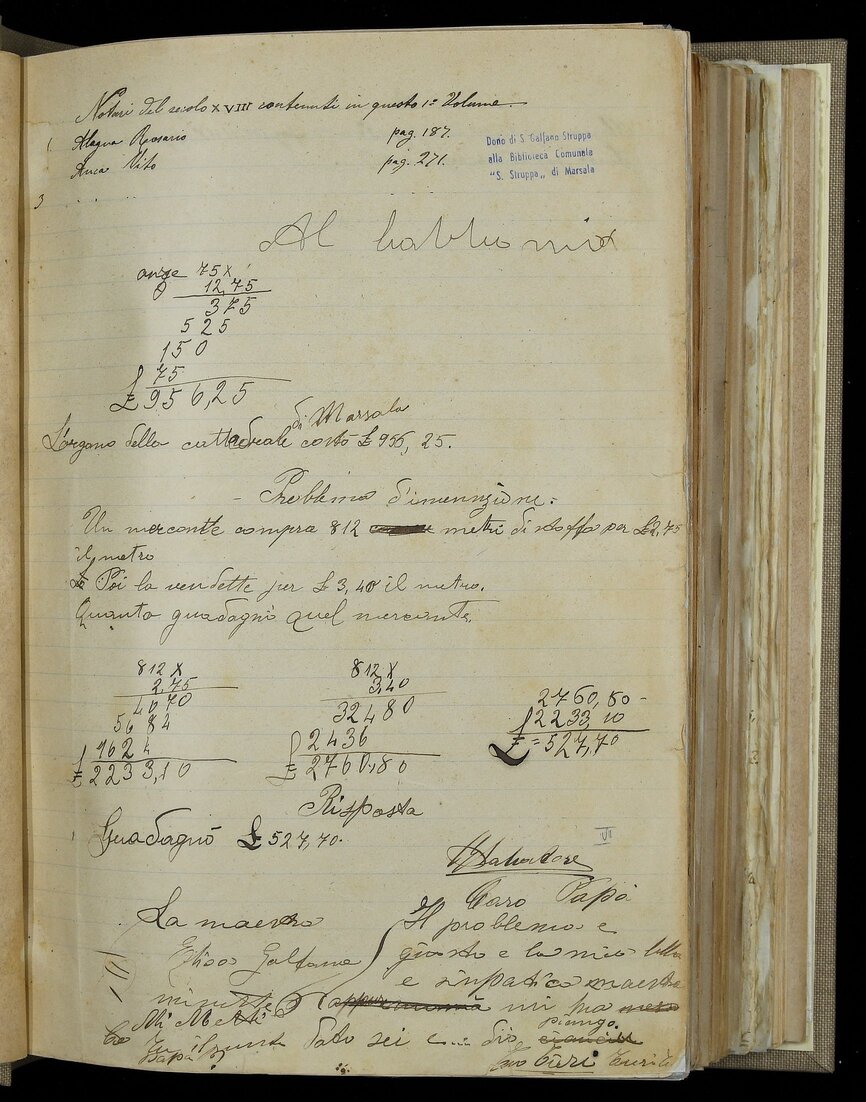 Notari del secolo XVIII contenuti in questo 1º Volume
1 Alagna Rosario pag. 187.
Luca Vito pag. 271.
3
Dono di S. Galfano Struppa
alla Biblioteca Comunale
"S. Struppa„ di Marsala
Al babbo mio
onze 75 x
12,75
375
525
150
75
£ 956,25
L'organo della cattadreale di Marsala costò £ 956,25.
- Problema d'invenzione =
Un mercante compra 812 metri di stoffa per £ 2,75
il metro
Poi la vendette per £ 3,40 il metro.
Quanto guadagnò quel mercante.
812 x
2,75
4070
5684
1624
£ 2233,10
812 x
3,40
32480
2436
£ 2760,80
2760,80 -
£ 2233,10
£ = 527,70
Risposta
Guadagnò £ 527,70.
VI
Salvatore
La maestra
Elisa Galfano
Caro Papà
Il problema e
giusto e la mia bella
e sinpatica maestra
mi ha
dato sei
piango.
tuo Turi